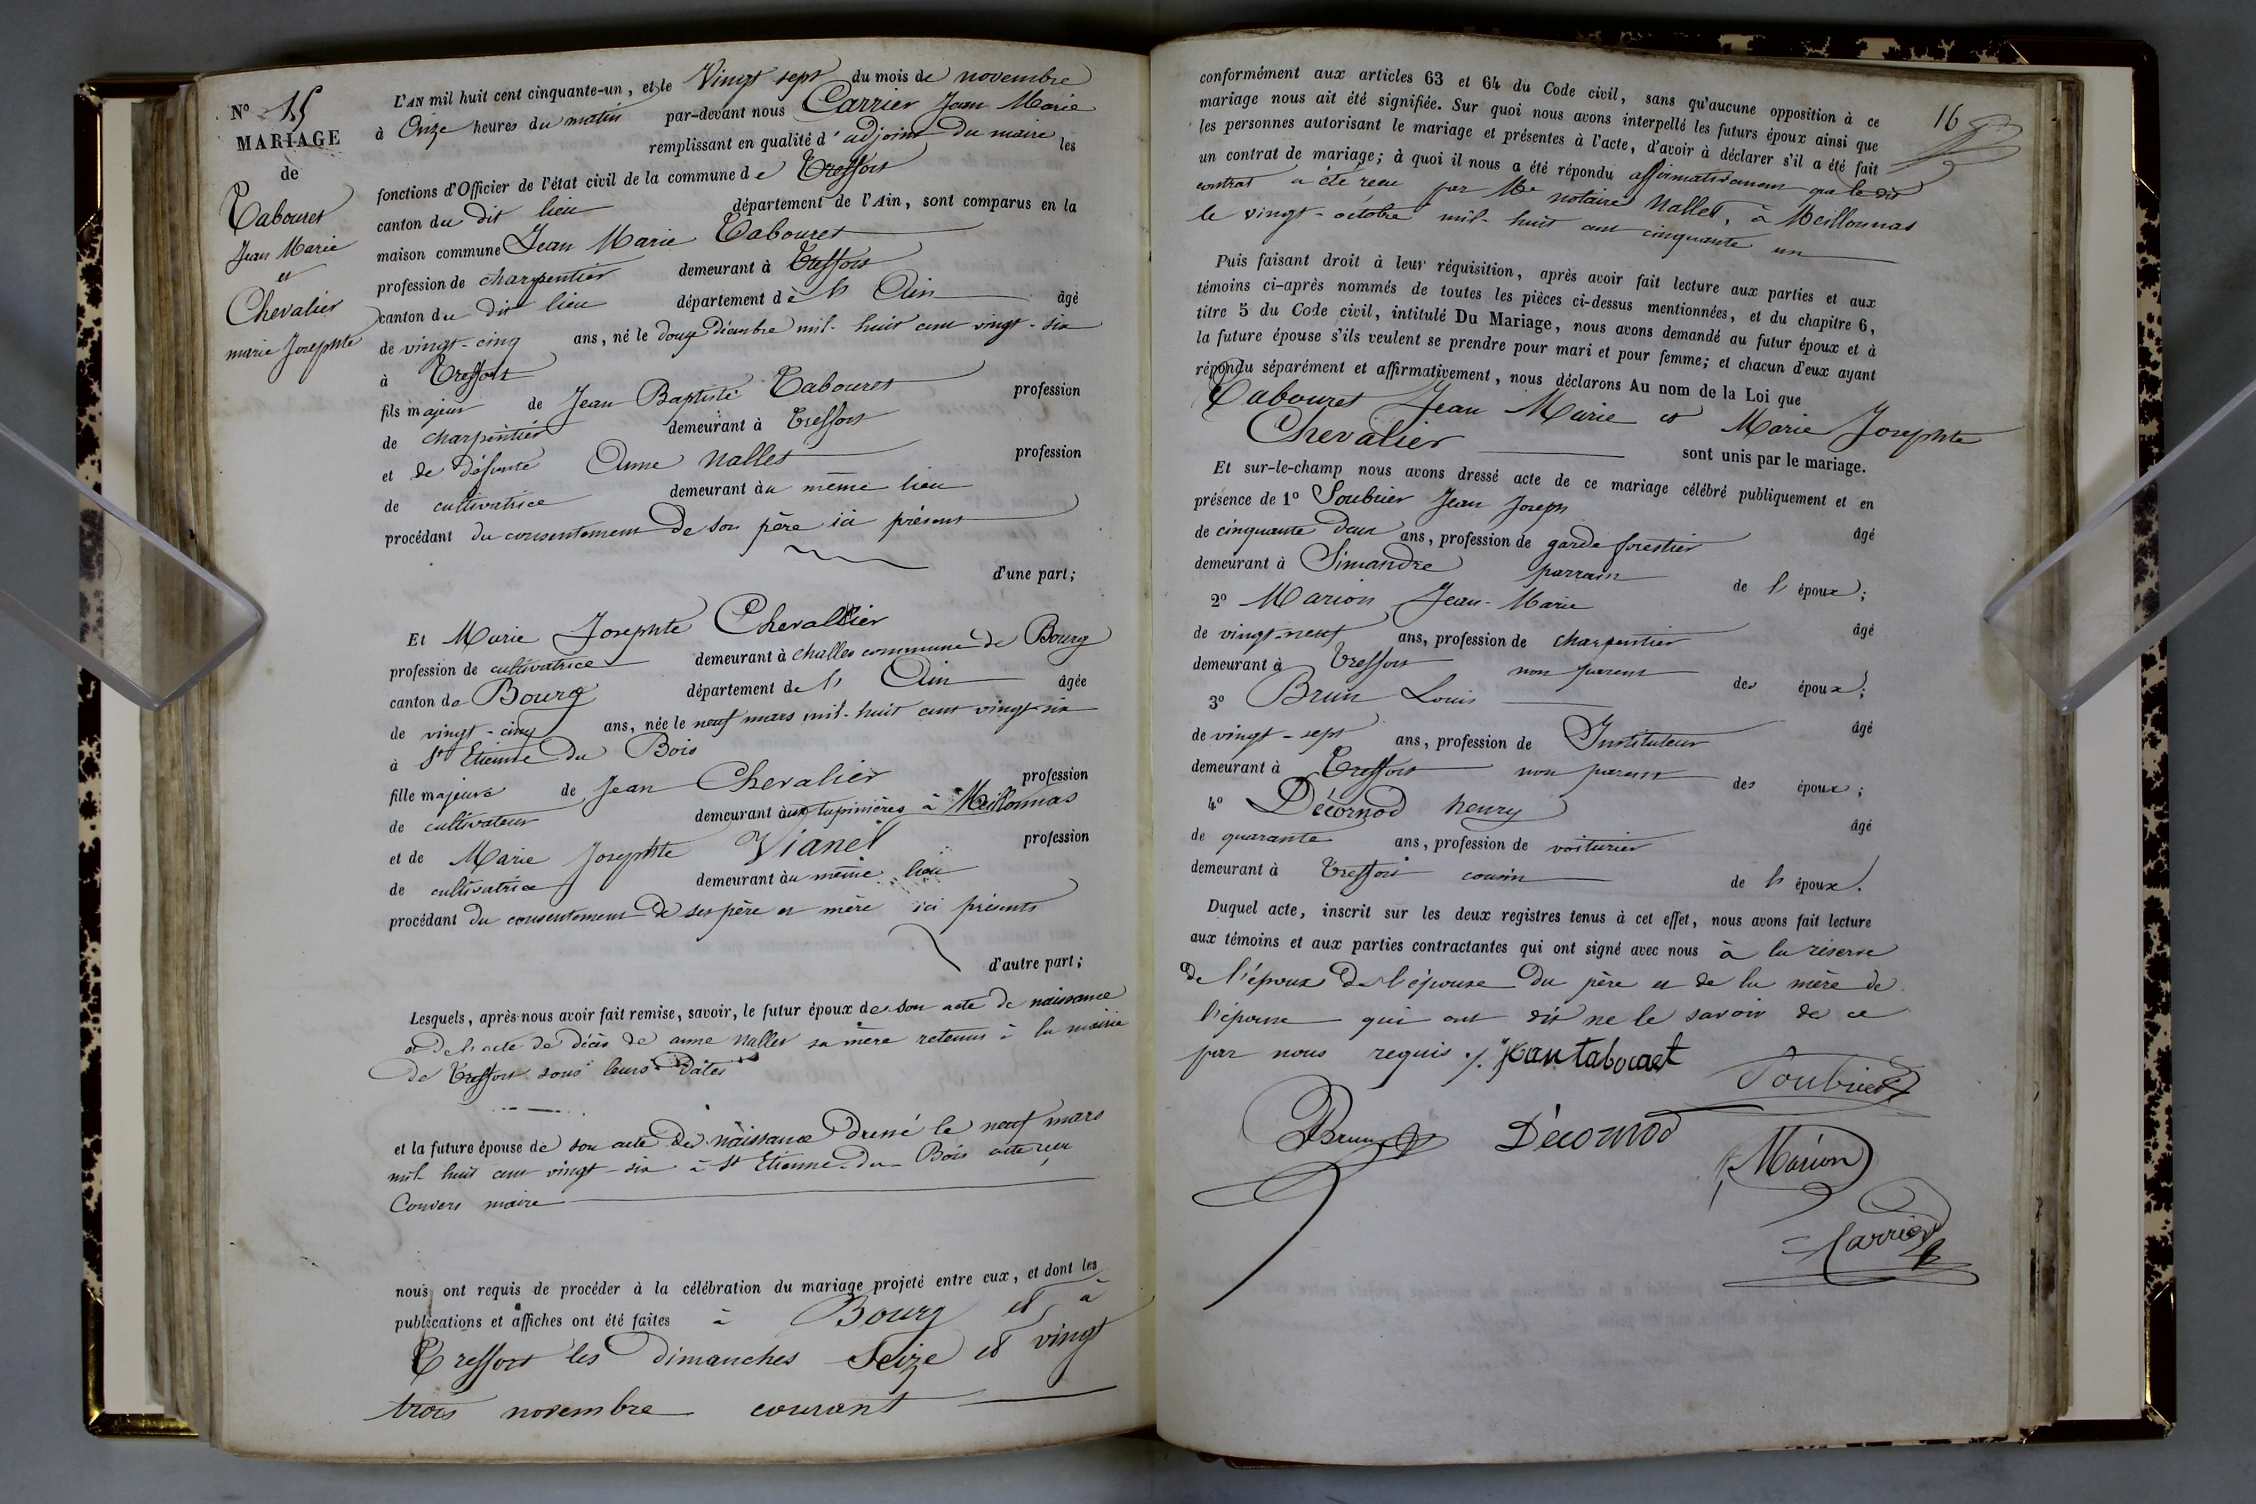 N° 15
MARIAGE
de
Tabouret
Jean Marie
et
Chevalier
marie Josephte
L'AN mil huit cent cinquante-un, et le Vingt sept du mois de novembre
à Onze heures du matin par-devant nous Carrier Jean Marie
remplissant en qualité d'adjoint du maire les
fonctions d'Officier de l'état civil de la commune de Treffort
canton du dit lieu département de l'Ain, sont comparus en la
maison commune Jean Marie Tabouret
profession de charpentier demeurant à Treffort
canton du dit lieu département de l'Ain âgé
de vingt-cinq ans, né le douze Décembre mil-huit cent vingt-six
à Treffort
fils majeur de Jean Baptiste Tabouret profession
de charpentier demeurant à Treffort
et de défunte Anne Nallet profession
de cultivatrice demeurant au même lieu
procédant du consentement de son père ici présent
d'une part;
Et Marie Josephte Chevallier
profession de cultivatrice demeurant à challes commune de Bourg
canton de Bourg département de l'Ain âgée
de vingt-cinq ans, née le neuf mars mil-huit cent vingt-six
à St Etienne du Bois
fille majeure de Jean Chevalier profession
de cultivateur demeurant aux tupinières à Meillonnas
et de Marie Josephte Vianet profession
de cultivatrice demeurant au même lieu
procédant du consentement de ses père et mère ici présents
d'autre part;
Lesquels, après nous avoir fait remise, savoir, le futur époux de son acte de naissance
et de l'acte de décès de anne Nallet sa mère retenus à la mairie
de Treffort sous leurs dates
et la future épouse de son acte de naissance dressé le neuf mars
mil-huit cent vingt-six à St Etienne-du-Bois acte reçu
Convers maire
nous ont requis de procéder à la célébration du mariage projeté entre eux, et dont les
publications et affiches ont été faites à Bourg et à
Treffort les dimanches Seize et vingt
trois novembre courant
16
conformément aux articles 63 et 64 du Code civil, sans qu'aucune opposition à ce
mariage nous ait été signifiée. Sur quoi nous avons interpellé les futurs époux ainsi que
les personnes autorisant le mariage et présentes à l'acte, d'avoir à déclarer s'il a été fait
un contrat de mariage; à quoi il nous a été répondu affirmativement que le dit
contrat a été reçu par Me notaire Nallet, à Meillonnas
le vingt-octobre mil-huit cent cinquante un
Puis faisant droit à leur réquisition, après avoir fait lecture aux parties et aux
témoins ci-après nommés de toutes les pièces ci-dessus mentionnées, et du chapitre 6,
titre 5 du Code civil, intitulé Du Mariage, nous avons demandé au futur époux et à
la future épouse s'ils veulent se prendre pour mari et pour femme; et chacun d'eux ayant
répondu séparément et affirmativement, nous déclarons Au nom de la Loi que
Tabouret Jean Marie et Marie Josephte
Chevalier sont unis par le mariage.
Et sur-le-champ nous avons dressé acte de ce mariage célébré publiquement et en
présence de 1° Soubrier Jean Joseph âgé
de cinquante deux ans, profession de garde forestier
demeurant à Simandre parrain de l'époux;
2° Marion Jean-Marie âgé
de vingt-neuf ans, profession de charpentier
demeurant à Treffort non parent des époux;
3° Brun Louis âgé
de vingt-sept ans, profession de Instituteur
demeurant à Treffort non parent des époux;
4° Décornod henry âgé
de quarante ans, profession de voiturier
demeurant à Treffort cousin de l'époux.
Duquel acte, inscrit sur les deux registres tenus à cet effet, nous avons fait lecture
aux témoins et aux parties contractantes qui ont signé avec nous à la réserve
de l'époux de l'épouse du père et de la mère de
l'épouse qui ont dit ne le savoir de ce
par nous requis ./. jean tabouret
Soubrier
Brun Décornod
Marion
Carrier